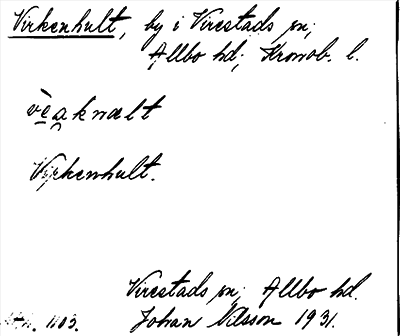 Virkenhult, by i Virestads sn;
Allbo hd; Kronob. l.
Virkenhult.
Virestads sn; Allbo hd.
1103. Johan Nilsson 1931.